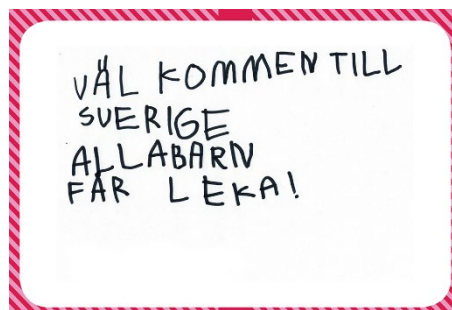 VÄL KOMMEN TILL
SVERIGE
ALLABARN
FÅR LEKA!